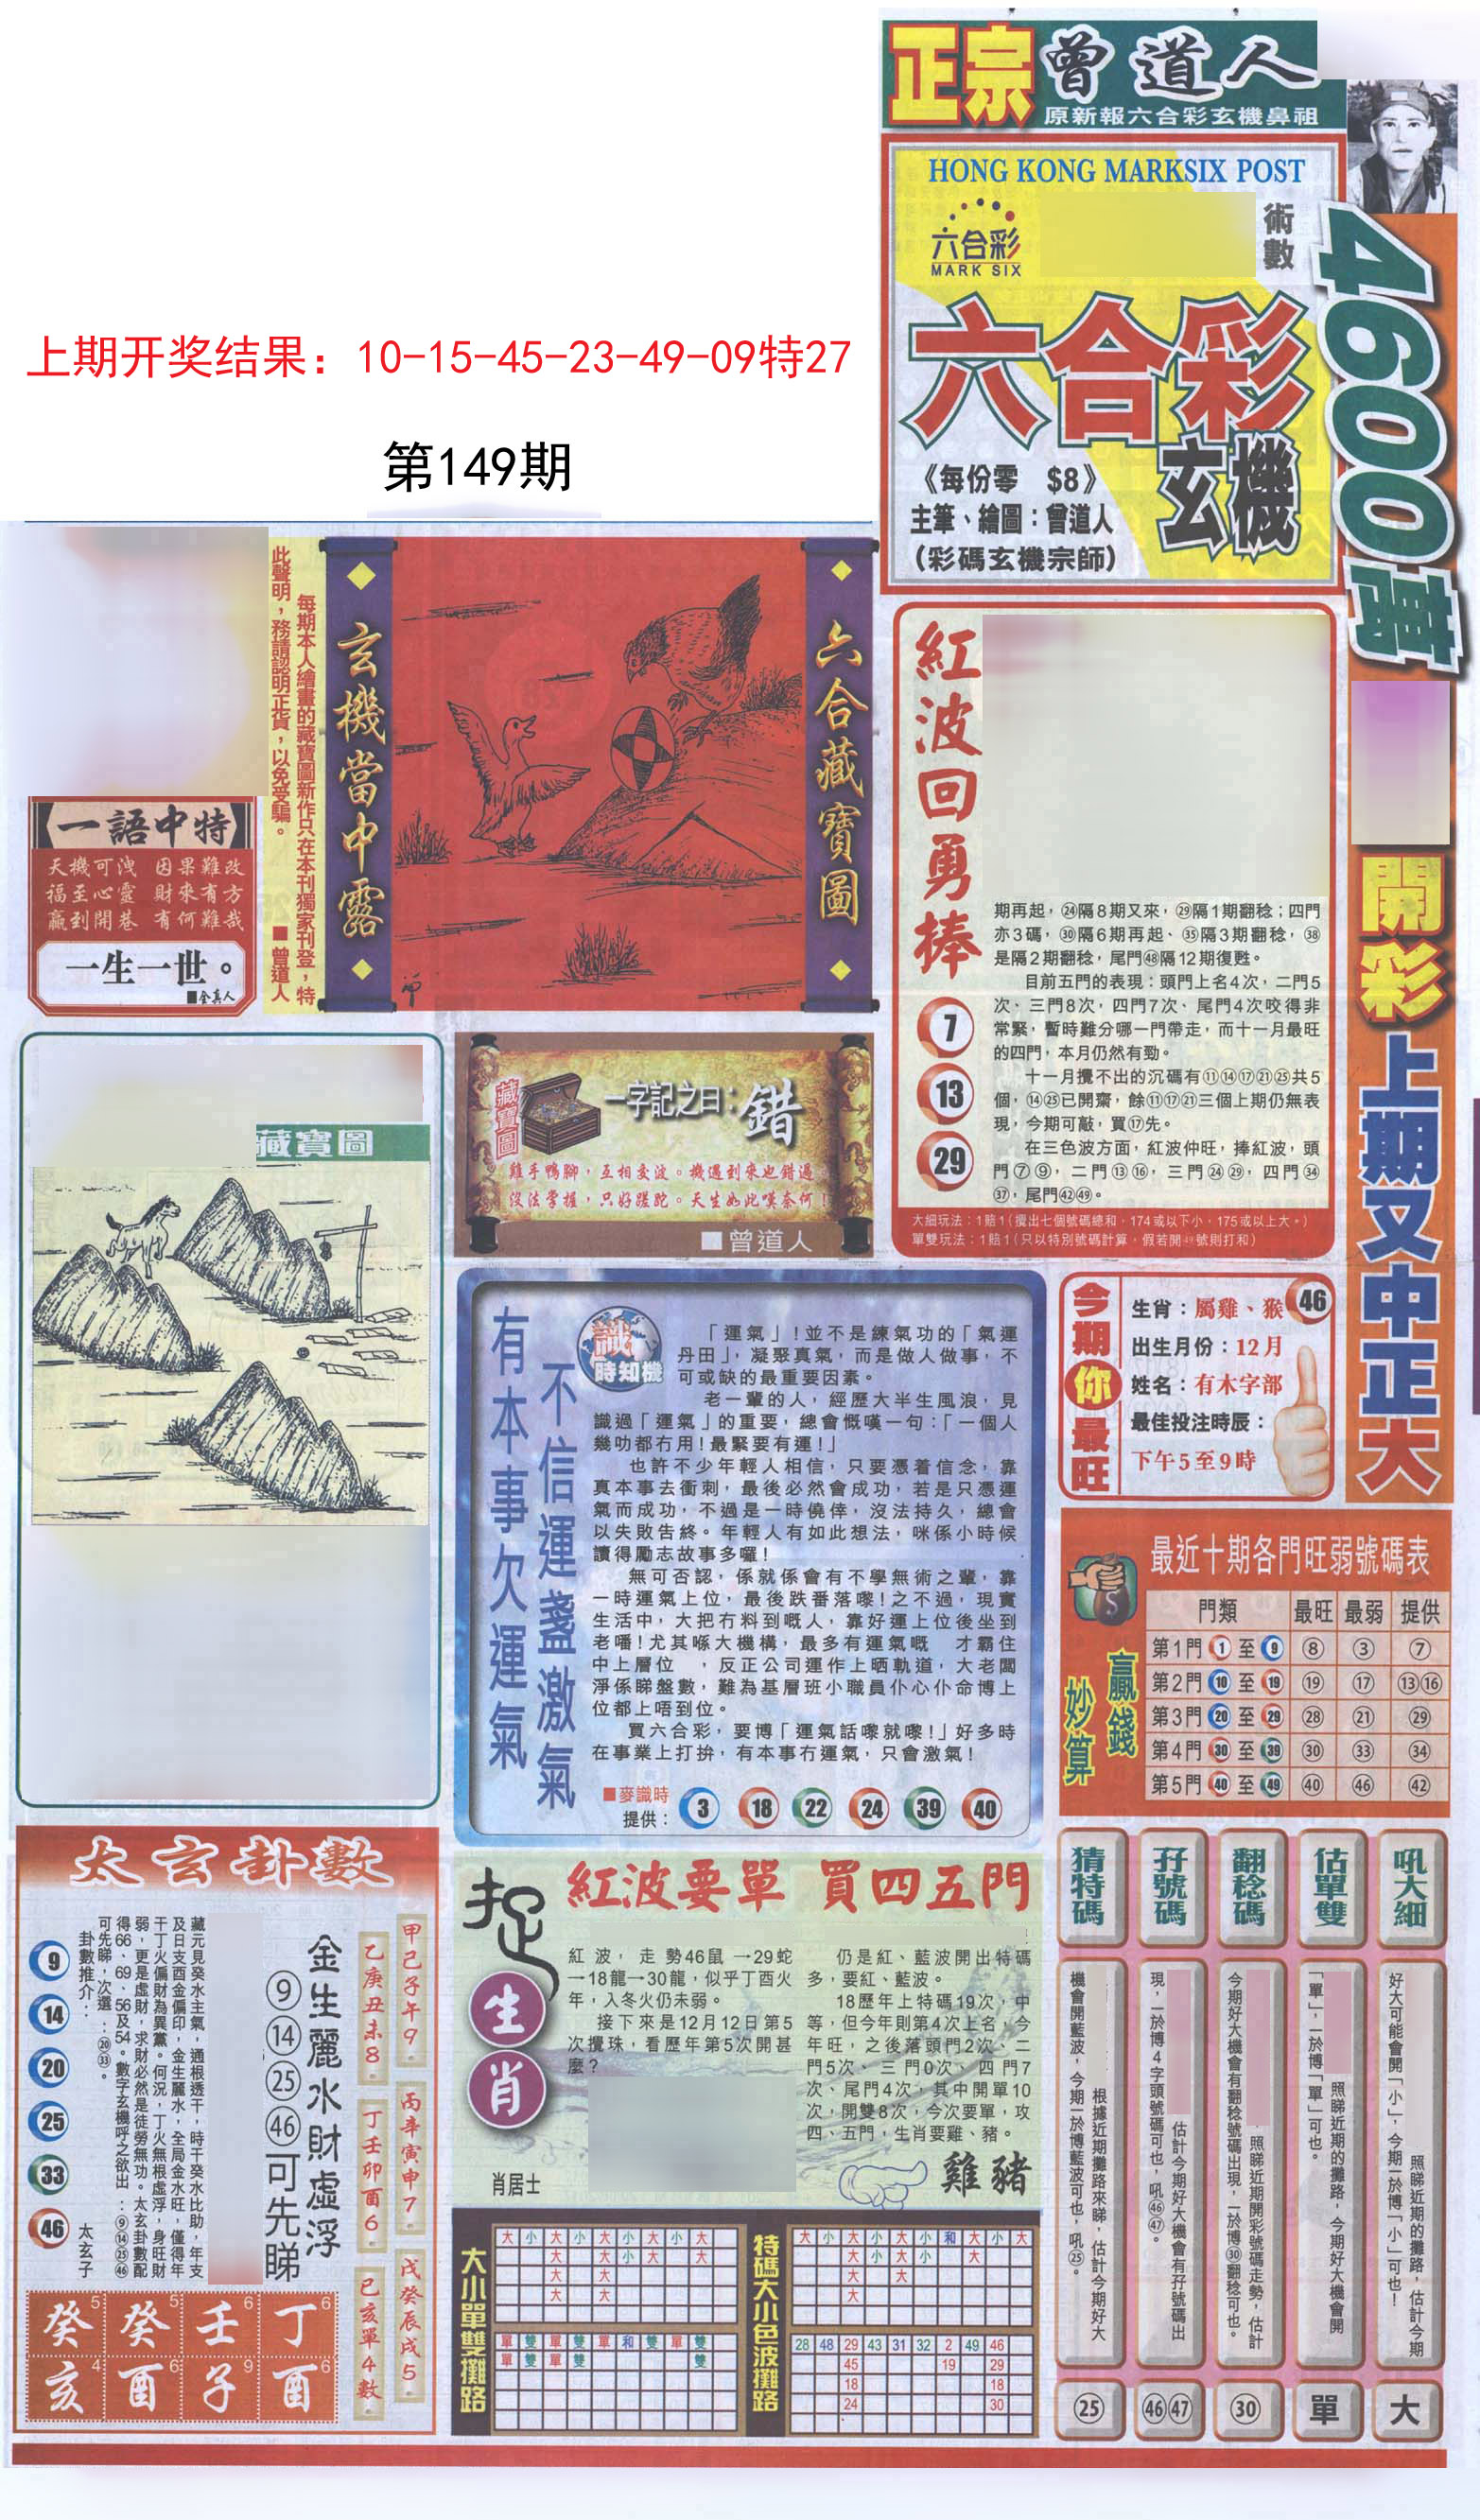 正宗曾道人
原新報六合彩玄機鼻祖
HONG KONG MARKSIX POST
六合彩
MARK SIX
術數
六合彩
玄機
《每份零 $8》
主筆、繪圖：曾道人
（彩碼玄機宗師）
4600萬
開彩
上期又中正大
上期开奖结果：10-15-45-23-49-09特27
第149期
每期本人繪畫的藏寶圖新作只在本刊獨家刊登，特
此聲明，務請認明正貨，以免受騙。
■曾道人
六合藏寶圖
玄機當中露
一語中特
天機可洩 因果難改
福至心靈 財來有方
贏到開巷 有何難哉
一生一世。
■全真人
紅波回勇捧
7
13
29
期再起，㉔隔8期又來，㉙隔1期翻稔；四門
亦3碼，㉚隔6期再起、㉟隔3期翻稔，㊳
是隔2期翻稔，尾門㊽隔12期復甦。
目前五門的表現：頭門上名4次，二門5
次、三門8次，四門7次、尾門4次咬得非
常緊，暫時難分哪一門帶走，而十一月最旺
的四門，本月仍然有勁。
十一月攪不出的沉碼有⑪⑭⑰㉑㉕共5
個，⑭㉕已開齋，餘⑪⑰㉑三個上期仍無表
現，今期可敲，買⑰先。
在三色波方面，紅波仲旺，捧紅波，頭
門⑦⑨，二門⑬⑯，三門㉔㉙，四門㉞
㊲，尾門㊷㊾。
大細玩法：1賠1（攪出七個號碼總和，174或以下小，175或以上大。）
單雙玩法：1賠1（只以特別號碼計算，假若開㊾號則打和）
藏寶圖
藏寶圖
一字記之曰：錯
雞手鴨腳，互相交波。機遇到來也錯過
沒法掌握，只好蹉跎。天生如此嘆奈何！
■曾道人
有本事欠運氣
不信運盞激氣
識時知機
「運氣」！並不是練氣功的「氣運
丹田」，凝聚真氣，而是做人做事，不
可或缺的最重要因素。
老一輩的人，經歷大半生風浪，見
識過「運氣」的重要，總會慨嘆一句：「一個人
幾叻都冇用！最緊要有運！」
也許不少年輕人相信，只要憑着信念，靠
真本事去衝刺，最後必然會成功，若是只憑運
氣而成功，不過是一時僥倖，沒法持久，總會
以失敗告終。年輕人有如此想法，咪係小時候
讀得勵志故事多囉！
無可否認，係就係會有不學無術之輩，靠
一時運氣上位，最後跌番落嚟！之不過，現實
生活中，大把冇料到嘅人，靠好運上位後坐到
老噃！尤其喺大機構，最多有運氣嘅 才霸住
中上層位 ，反正公司運作上晒軌道，大老闆
淨係睇盤數，難為基層班小職員仆心仆命博上
位都上唔到位。
買六合彩，要博「運氣話嚟就嚟！」好多時
在事業上打拚，有本事冇運氣，只會激氣！
■麥識時
提供：
3 18 22 24 39 40
今期你最旺
46
生肖：屬雞、猴
出生月份：12月
姓名：有木字部
最佳投注時辰：
下午5至9時
最近十期各門旺弱號碼表
贏錢妙算
門類 最旺 最弱 提供
第1門 1 至 9 ⑧ ③ ⑦
第2門 10 至 19 ⑲ ⑰ ⑬⑯
第3門 20 至 29 ㉘ ㉑ ㉙
第4門 30 至 39 ㉚ ㉝ ㉞
第5門 40 至 49 ㊵ ㊻ ㊷
太玄卦數
甲己子午9
乙庚丑未8
丙辛寅申7
丁壬卯酉6
戊癸辰戌5
己亥單4數
金生麗水財虛浮
⑨⑭㉕㊻可先睇
藏元見癸水主氣，通根透干，時干癸水比助，年支
及日支酉金偏印，金生麗水，全局金水旺，僅得年
干丁火偏財為異黨。何況，丁火無根虛浮，身旺財
弱，更是虛財，求財必然是徒勞無功。太玄卦數配
得66、69、56及54。數字玄機呼之欲出：⑨⑭㉕㊻
可先睇，次選：⑳㉝。
卦數推介：
太玄子
9
14
20
25
33
46
癸5 癸5 壬6 丁6
亥4 酉6 子9 酉6
捉生肖
紅波要單 買四五門
紅波，走勢46鼠→29蛇
→18龍→30龍，似乎丁酉火
年，入冬火仍未弱。
接下來是12月12日第5
次攪珠，看歷年第5次開甚
麼？
仍是紅、藍波開出特碼
多，要紅、藍波。
18歷年上特碼19次，中
等，但今年則第4次上名，今
年旺，之後落頭門2次、二
門5次、三門0次、四門7
次、尾門4次，其中開單10
次，開雙8次，今次要單，攻
四、五門，生肖要雞、豬。
肖居士
雞豬
大小單雙攤路
大 小 大 小 大 小 大 小 大
大 大 小 大 大
大 大
大 大
單 雙 單 雙 單 和 雙 單 雙
單 雙 單 雙 雙
特碼大小色波攤路
大 小 大 小 大 小 和 大 小 大
大 小 大 小 大
大 大
大
28 48 29 43 31 32 2 49 46
45 19 29
18 18
24 30
吼大細
照睇近期的攤路，估計今期
好大可能會開「小」，今期一於博「小」可也！
大
估單雙
照睇近期的攤路，今期好大機會開
「單」，一於博「單」可也。
單
翻稔碼
照睇近期開彩號碼走勢，估計
今期好大機會有翻稔號碼出現，一於博㉚翻稔可也。
㉚
孖號碼
估計今期好大機會有孖號碼出
現，一於博4字頭號碼可也，吼㊻㊼。
㊻㊼
猜特碼
根據近期攤路來睇，估計今期好大
機會開藍波，今期一於博藍波可也，吼㉕。
㉕